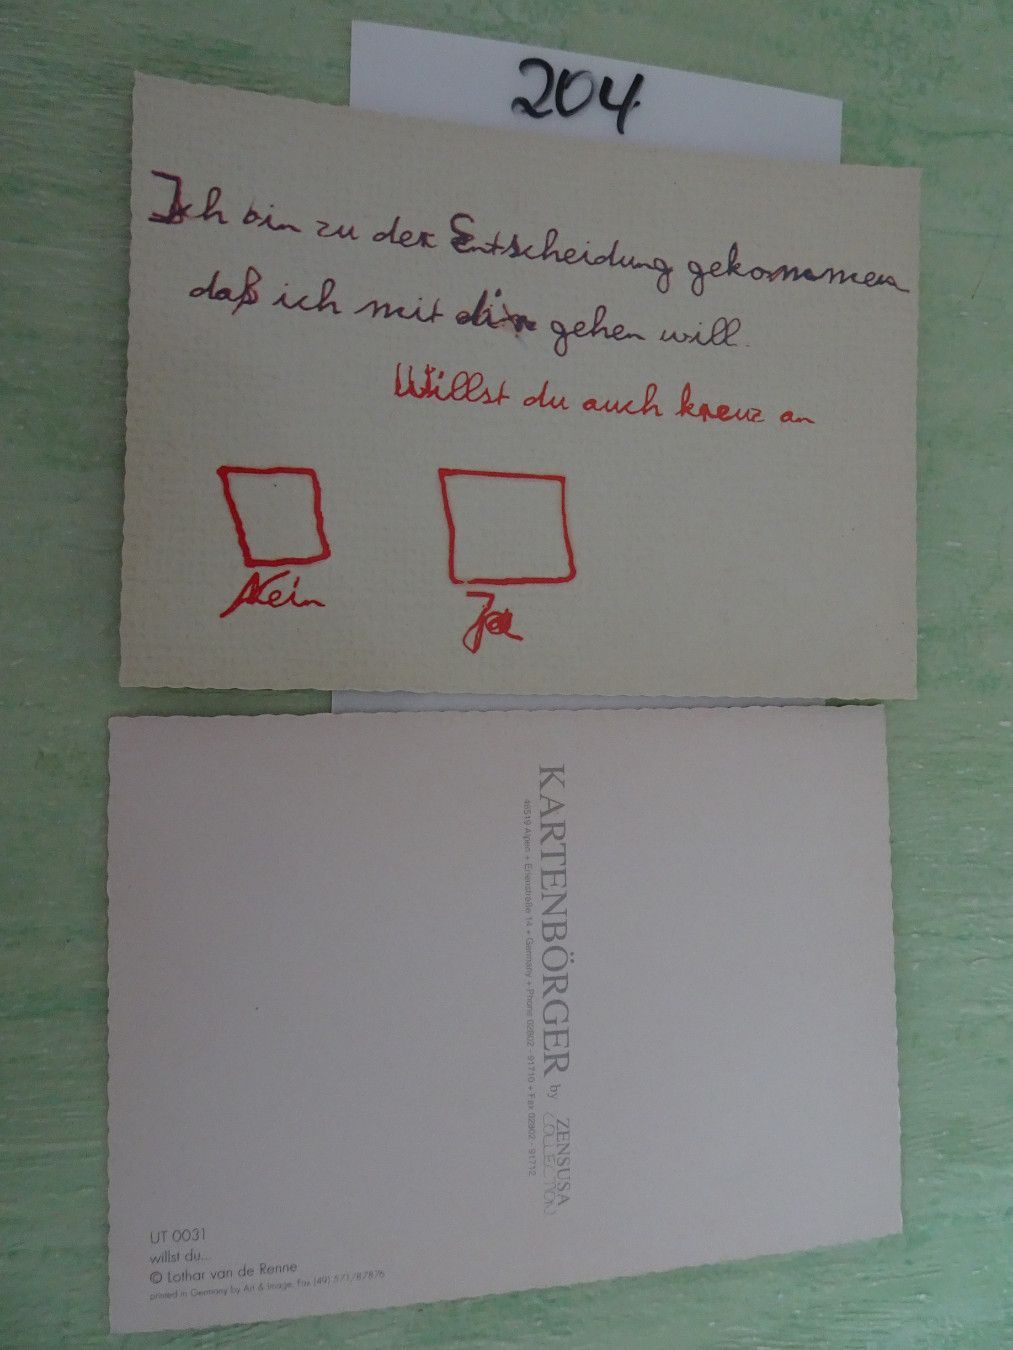 204
Ich bin zu der Entscheidung gekommen
daß ich mit dir gehen will.
Willst du auch kreuz an
Nein
Ja
KARTENBÖRGER by ZENSUSA COLLECTION
46519 Alpen + Erlenstraße 14 + Germany + Phone 02802 - 91710 + Fax 02802 - 91712
UT 0031
willst du...
© Lothar van de Renne
printed in Germany by Art & Image, Fax (49) 571/87876